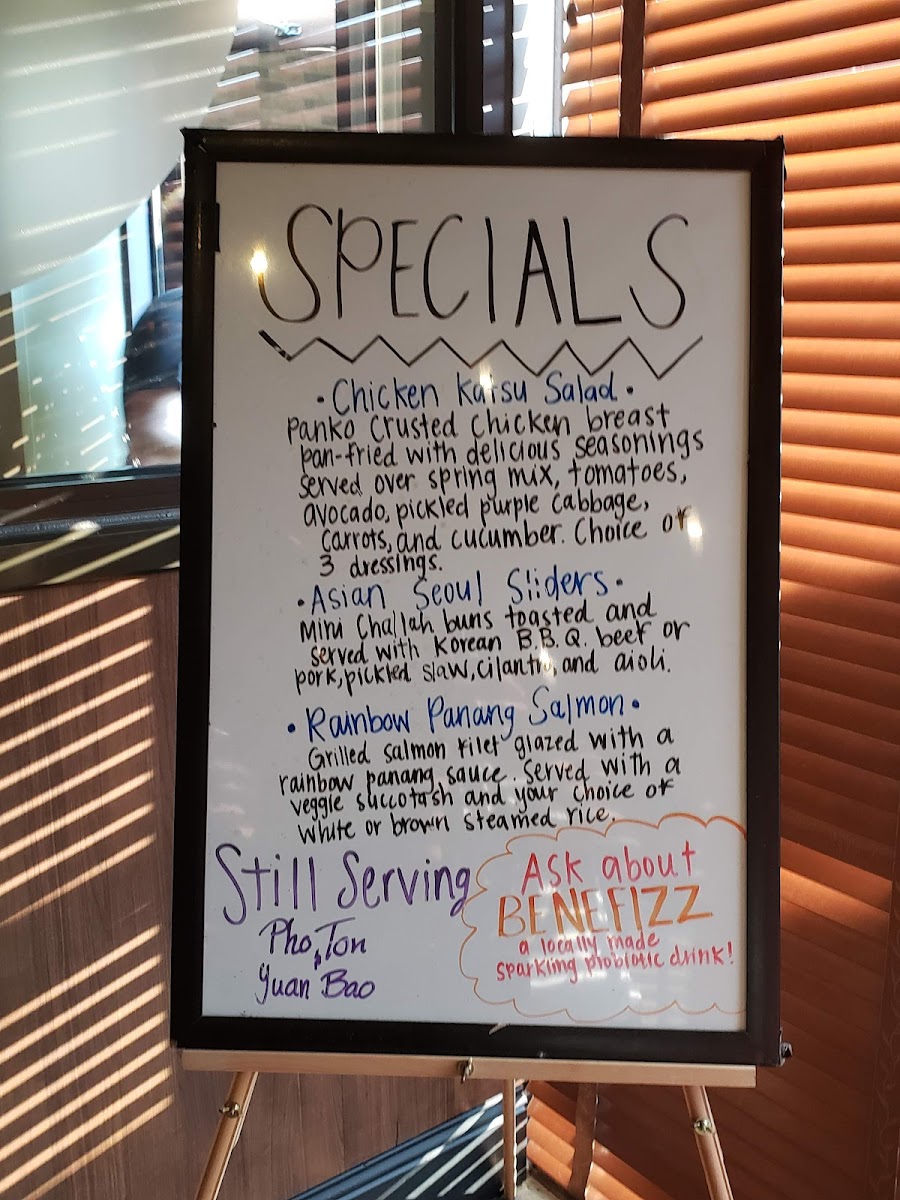 SPECIALS
• Chicken Katsu Salad •
Panko Crusted Chicken breast
pan-fried with delicious seasonings
served over spring mix, tomatoes,
avocado, pickled purple cabbage,
carrots, and cucumber. Choice of
3 dressings.
• Asian Seoul Sliders •
Mini Challah buns toasted and
served with Korean B.B.Q. beef or
pork, pickled slaw, cilantro, and aioli.
• Rainbow Panang Salmon •
Grilled salmon filet glazed with a
rainbow panang sauce. Served with a
veggie succotash and your choice of
white or brown steamed rice.
Still Serving
Pho, Ton
& Yuan Bao
Ask about
BENEFIZZ
a locally made
sparkling phobiotic drink!